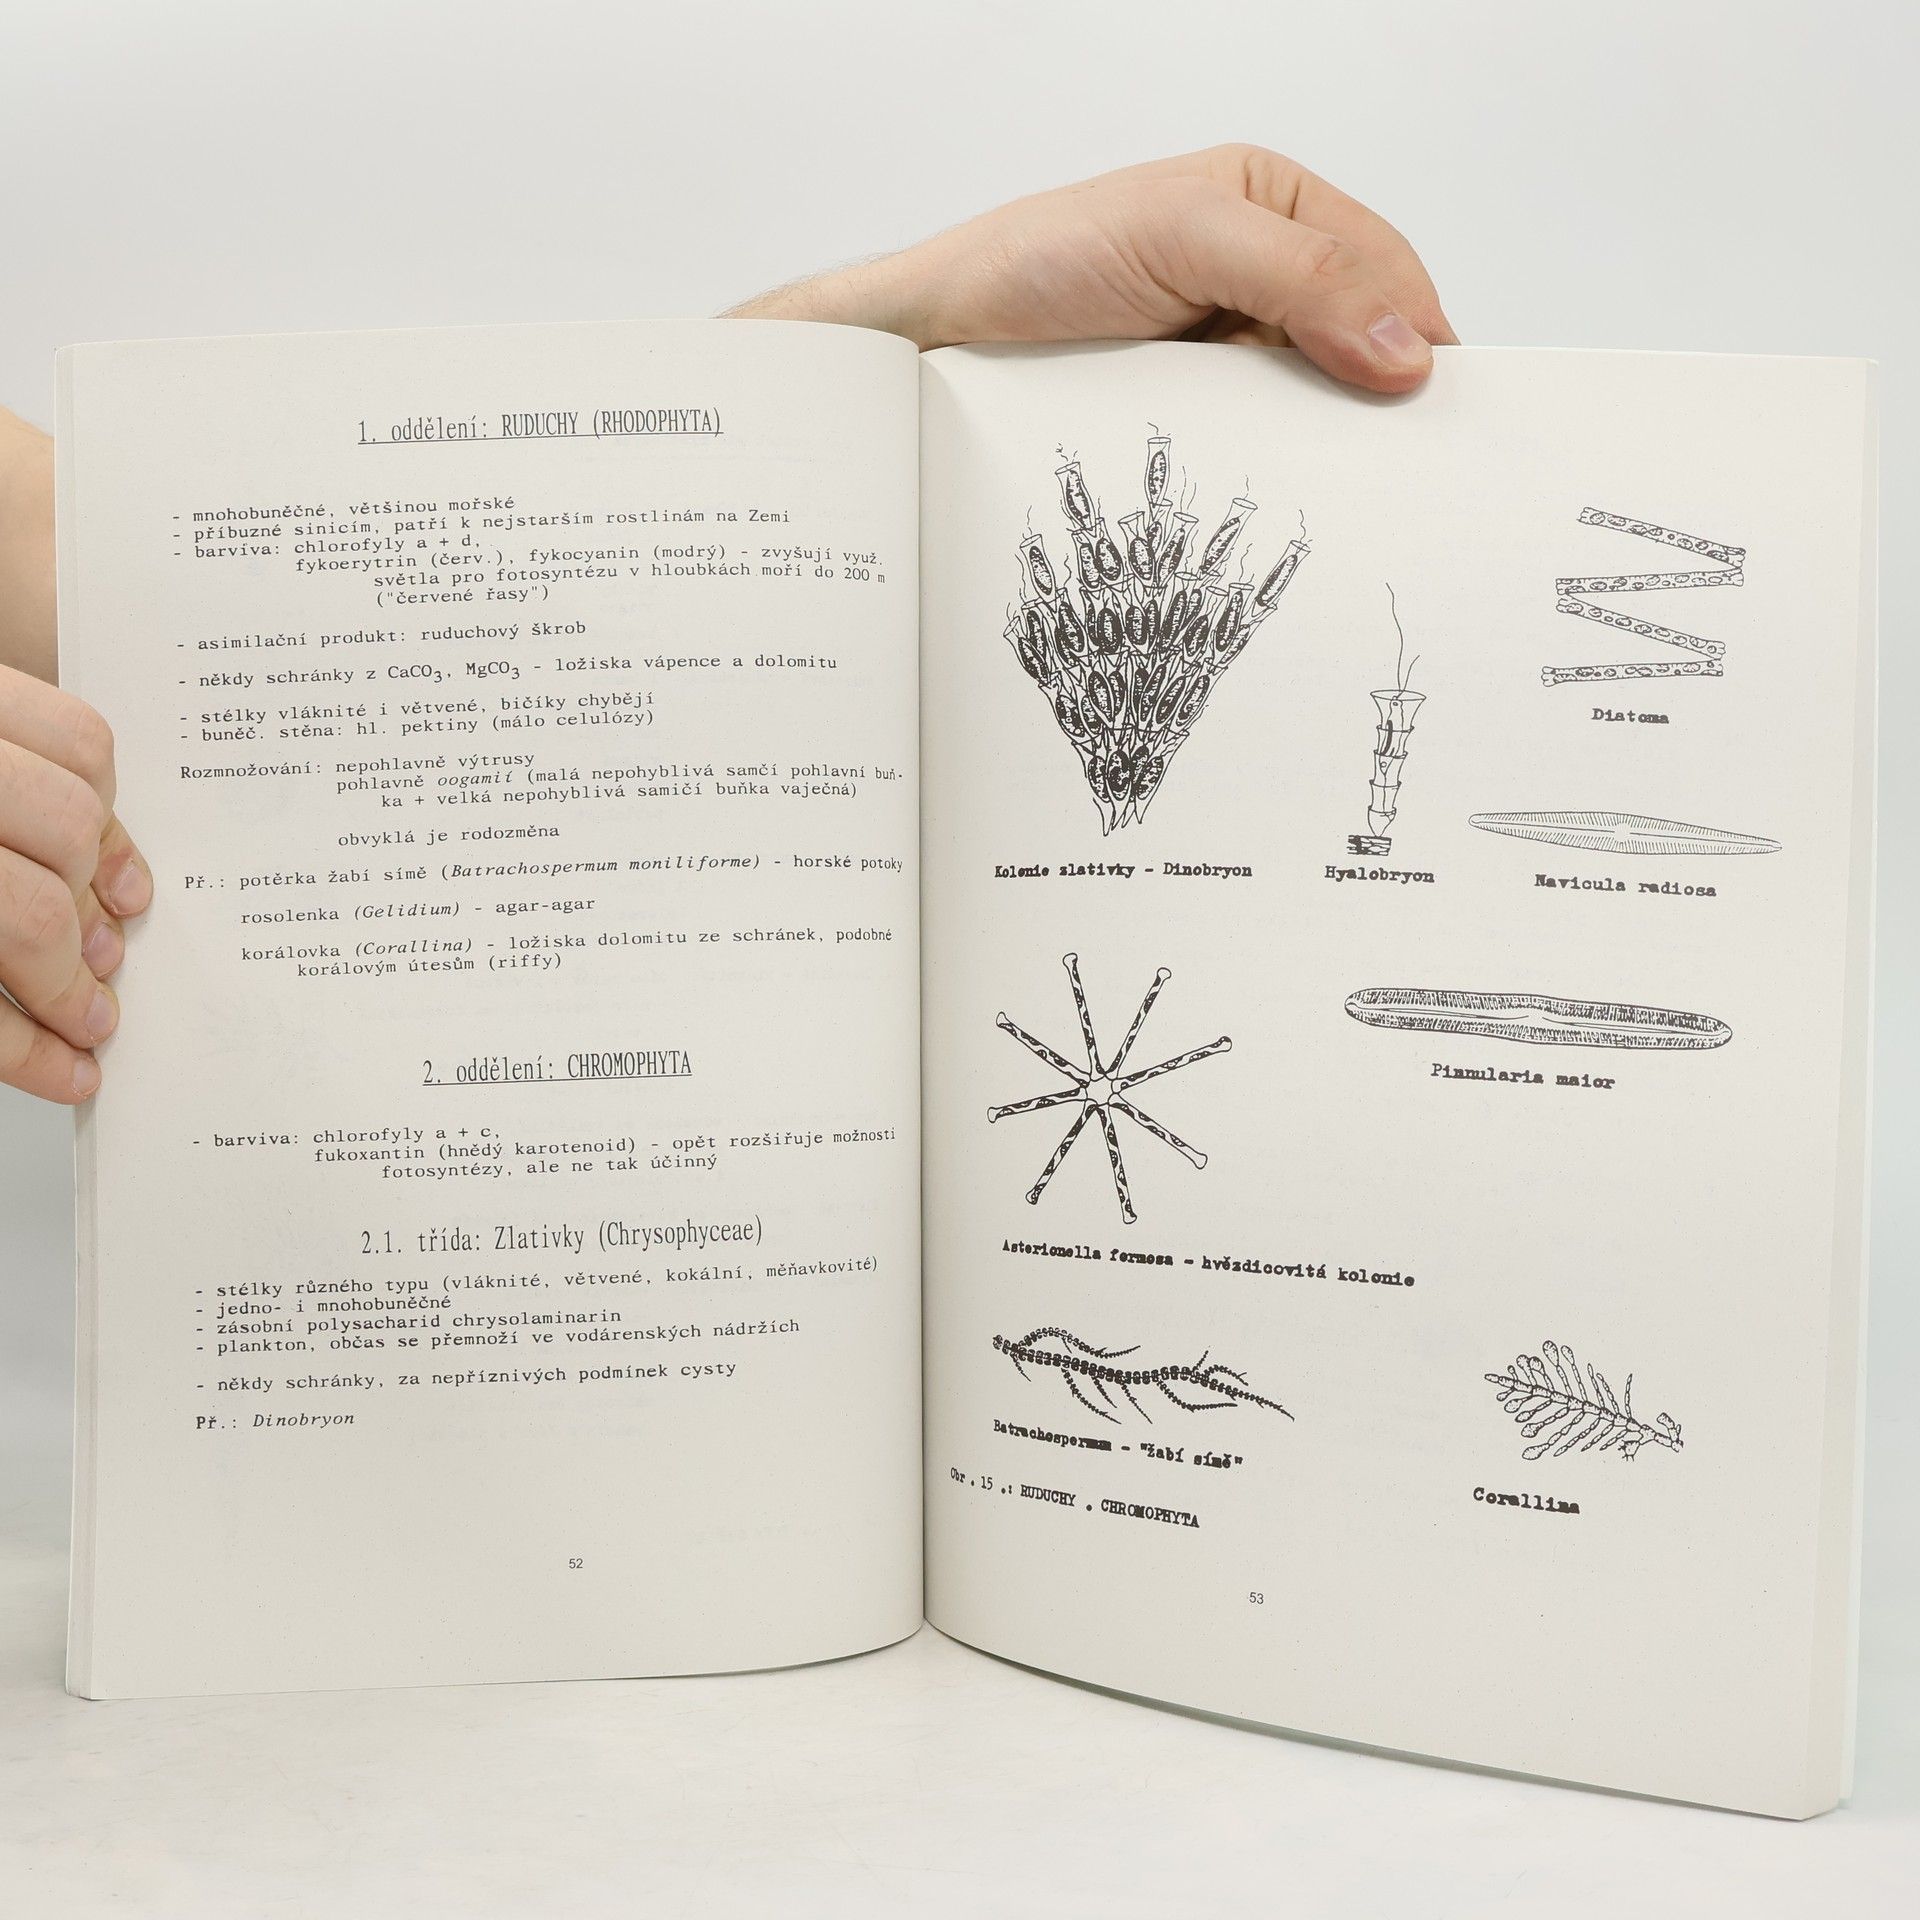 1. oddělení: RUDUCHY (RHODOPHYTA)
- mnohobuněčné, většinou mořské
- příbuzné sinicím, patří k nejstarším rostlinám na Zemi
- barviva: chlorofyly a + d,
fykoerytrin (červ.), fykocyanin (modrý) - zvyšují využ.
světla pro fotosyntézu v hloubkách moří do 200 m
("červené řasy")
- asimilační produkt: ruduchový škrob
- někdy schránky z CaCO3, MgCO3 - ložiska vápence a dolomitu
- stélky vláknité i větvené, bičíky chybějí
- buněč. stěna: hl. pektiny (málo celulózy)
Rozmnožování: nepohlavně výtrusy
pohlavně oogamií (malá nepohyblivá samčí pohlavní buň-
ka + velká nepohyblivá samičí buňka vaječná)
obvyklá je rodozměna
Př.: potěrka žabí símě (Batrachospermum moniliforme) - horské potoky
rosolenka (Gelidium) - agar-agar
korálovka (Corallina) - ložiska dolomitu ze schránek, podobné
korálovým útesům (riffy)
2. oddělení: CHROMOPHYTA
- barviva: chlorofyly a + c,
fukoxantin (hnědý karotenoid) - opět rozšiřuje možnosti
fotosyntézy, ale ne tak účinný
2.1. třída: Zlativky (Chrysophyceae)
- stélky různého typu (vláknité, větvené, kokální, měňavkovité)
- jedno- i mnohobuněčné
- zásobní polysacharid chrysolaminarin
- plankton, občas se přemnoží ve vodárenských nádržích
- někdy schránky, za nepříznivých podmínek cysty
Př.: Dinobryon
52
Diatoma
Kolonie zlativky - Dinobryon
Hyalobryon
Navicula radiosa
Pinnularia maior
Asterionella formosa - hvězdicovitá kolonie
Batrachospermum - "žabí símě"
Corallina
Obr. 15.: RUDUCHY. CHROMOPHYTA
53